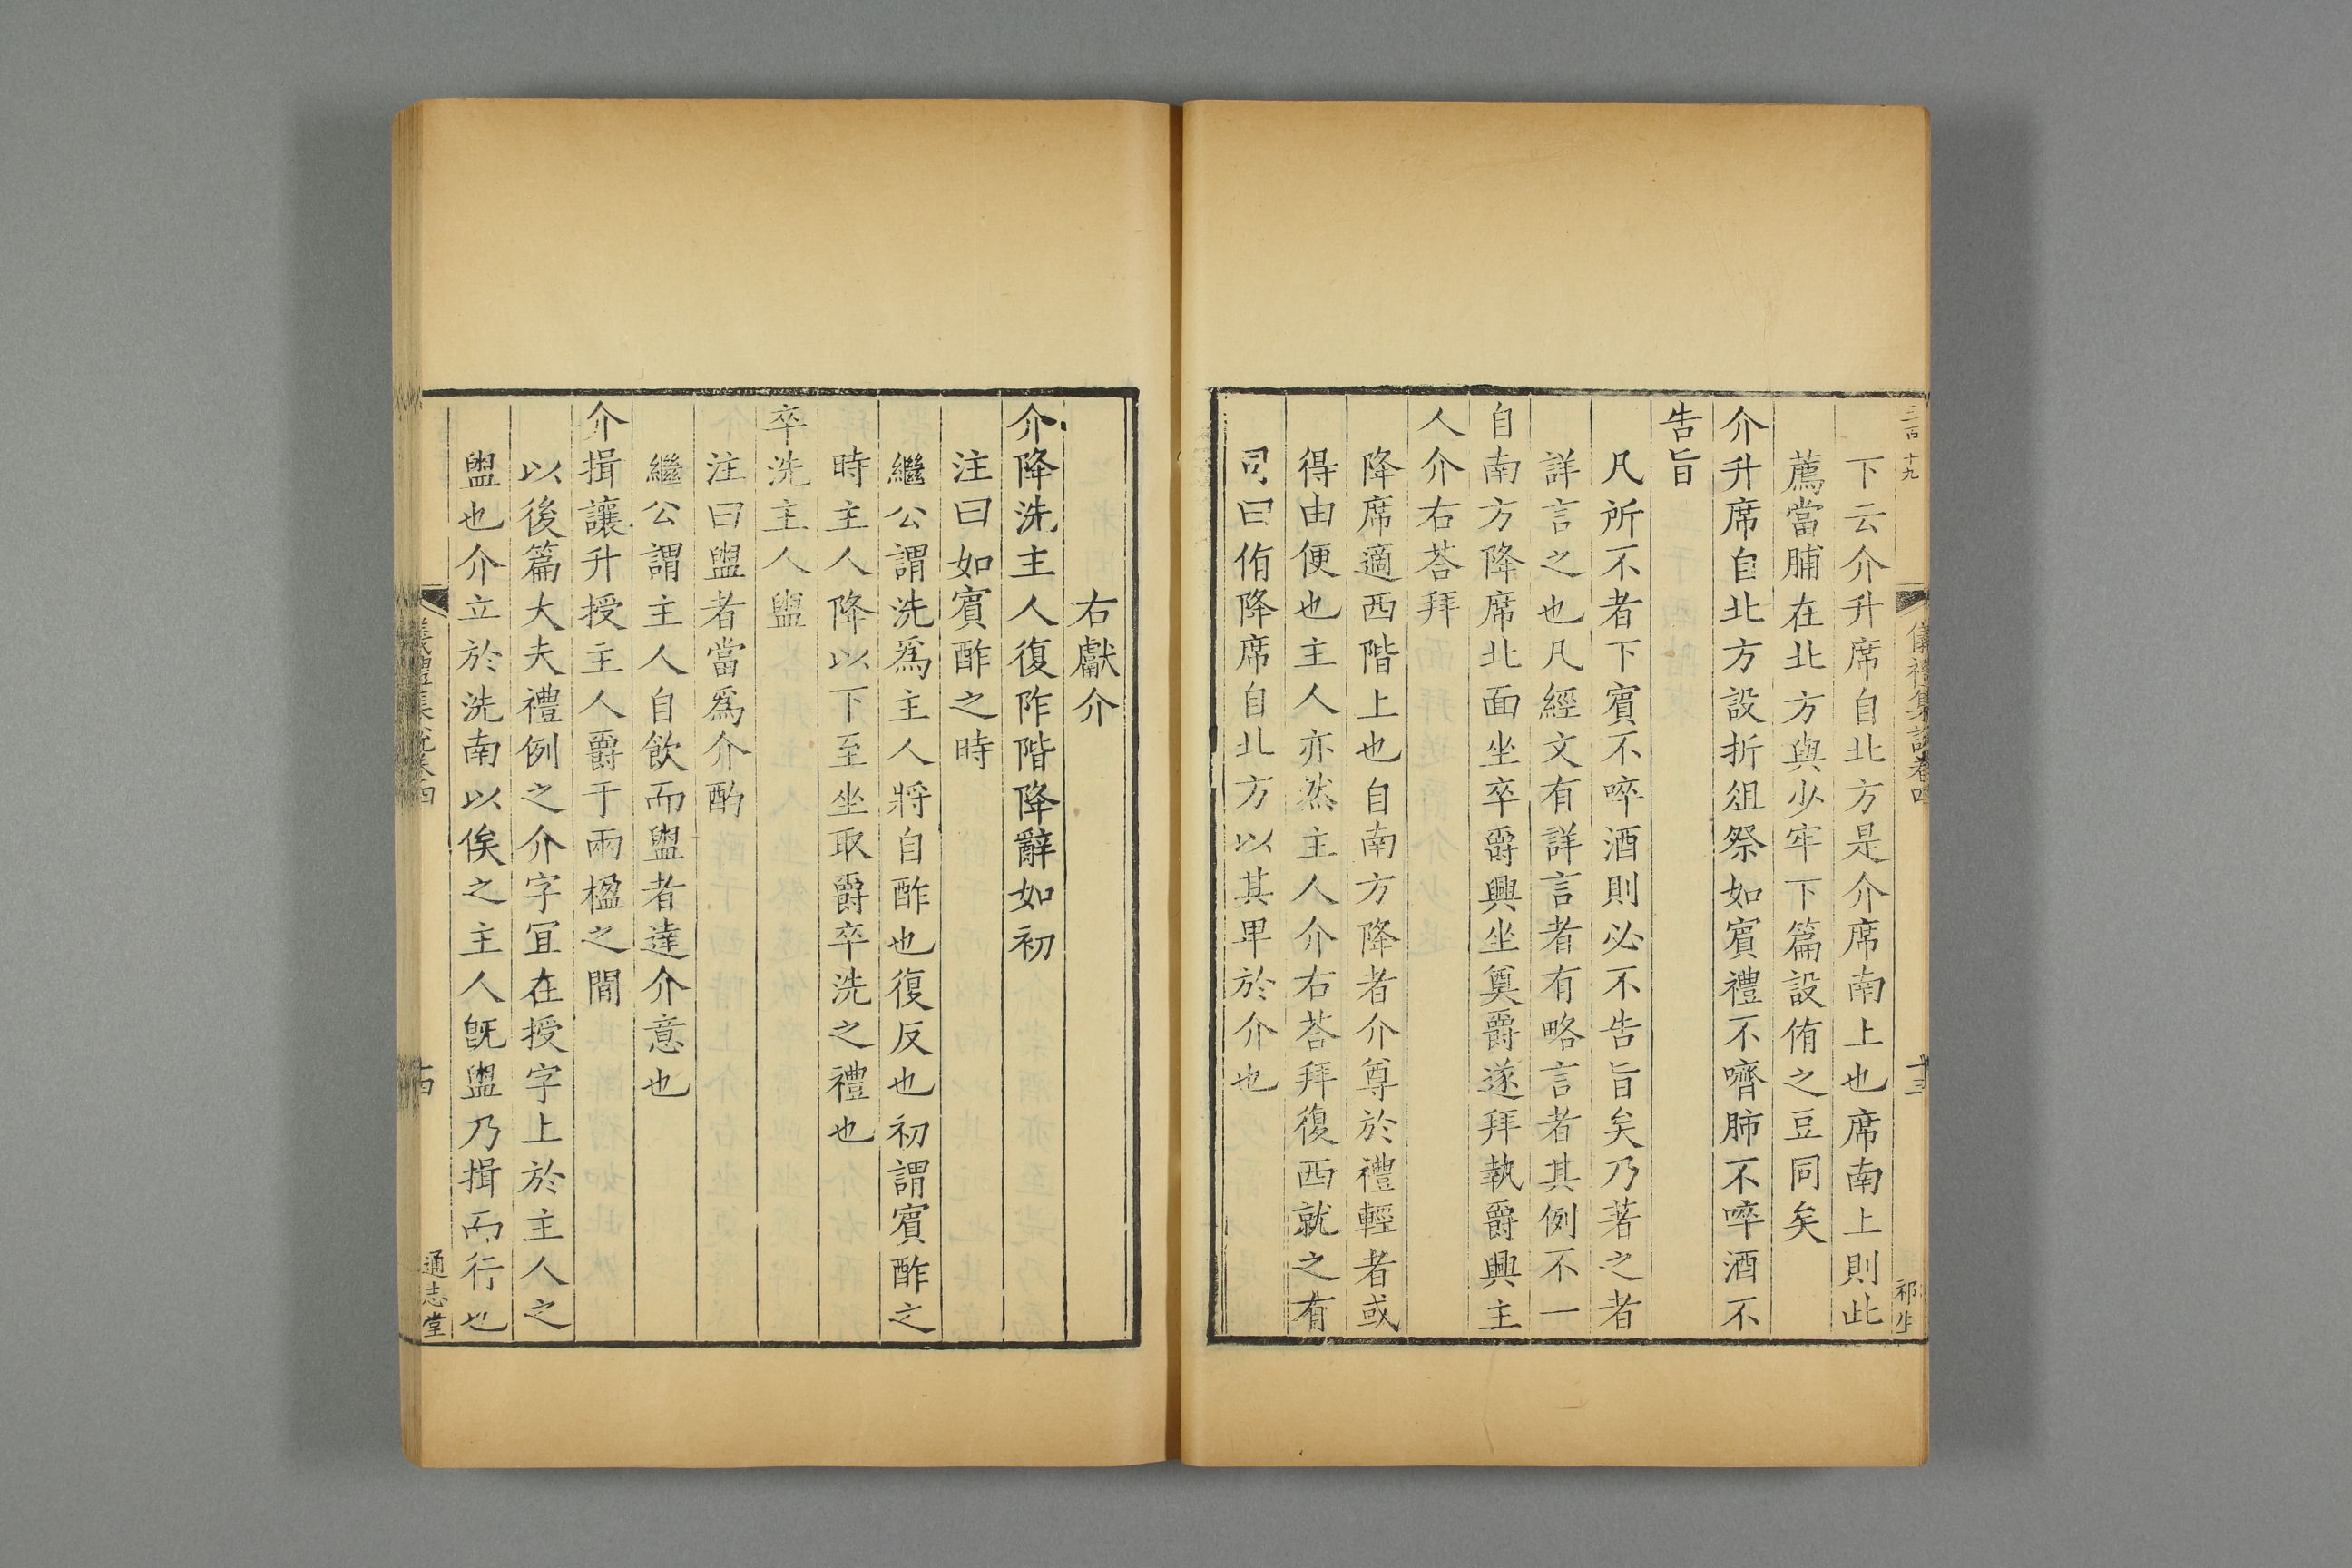 三百十九
儀禮集說卷四
十三
祁生
下云介升席自北方是介席南上也席南上則此
薦當脯在北方與少牢下篇設侑之豆同矣
介升席自北方設折俎祭如賓禮不嚌肺不啐酒不
告旨
凡所不者下賓不啐酒則必不告旨矣乃著之者
詳言之也凡經文有詳言者有略言者其例不一
自南方降席北面坐卒爵興坐奠爵遂拜執爵興主
人介右荅拜
降席適西階上也自南方降者介尊於禮輕者或
得由便也主人亦然主人介右荅拜復西就之有
司曰侑降席自北方以其卑於介也
右獻介
介降洗主人復阼階降辭如初
注曰如賓酢之時
繼公謂洗爲主人將自酢也復反也初謂賓酢之
時主人降以下至坐取爵卒洗之禮也
卒洗主人盥
注曰盥者當爲介酌
繼公謂主人自飲而盥者達介意也
介揖讓升授主人爵于兩楹之閒
以後篇大夫禮例之介字宜在授字上於主人之
盥也介立於洗南以俟之主人旣盥乃揖而行也
儀禮集說卷四
十四
通志堂